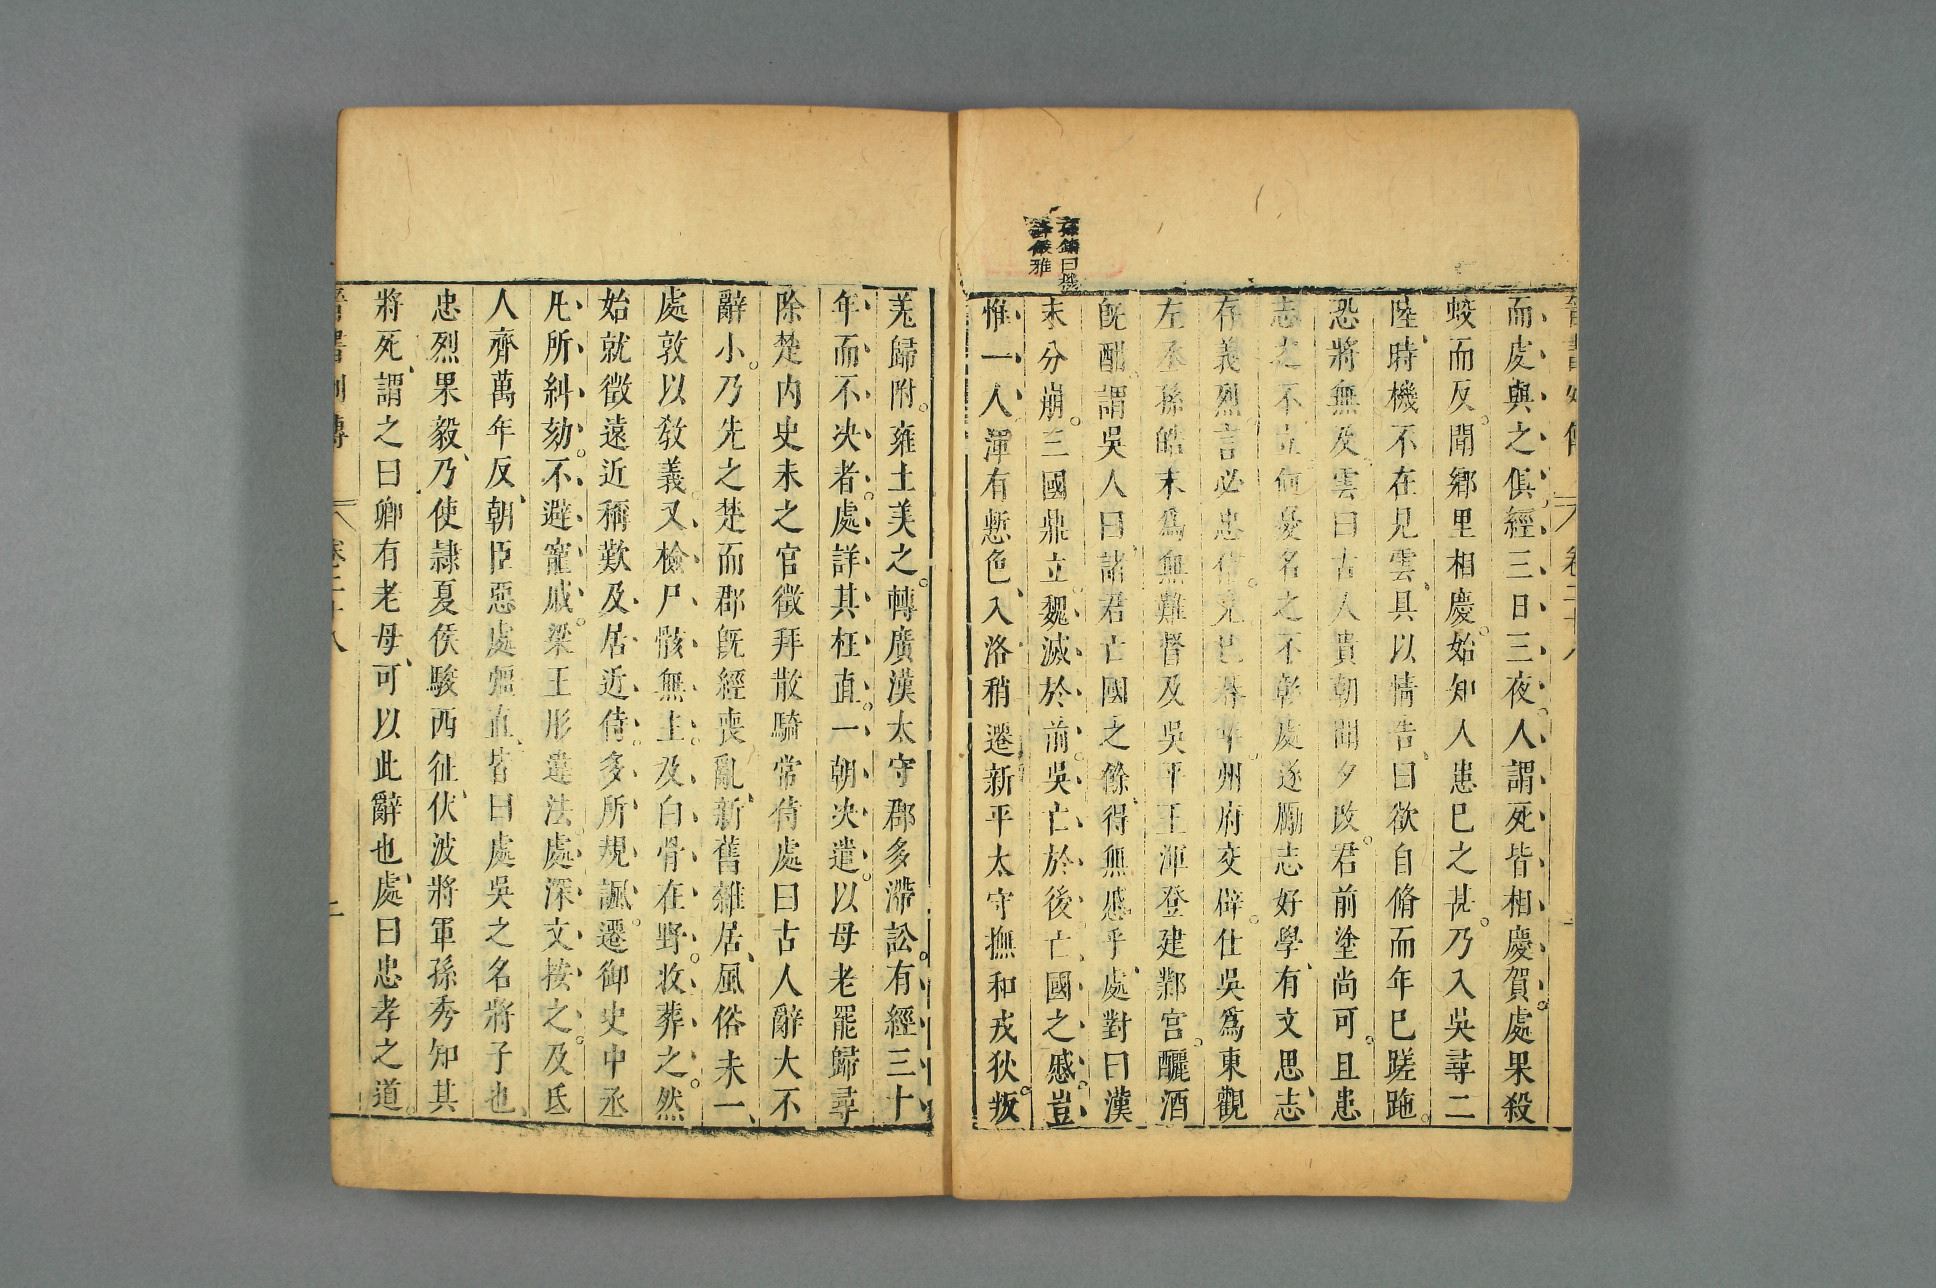 而處與之俱經三日三夜人謂死皆相慶賀處果殺
蛟而反聞鄉里相慶始知人患巳之甚乃入吳尋二
陸時機不在見雲具以情告曰欲自脩而年巳蹉跎
恐將無及雲曰古人貴朝聞夕改君前塗尚可且患
志之不立何憂名之不彰處遂勵志好學有文思志
存義烈言必忠信克巳朞年州府交辟仕吳爲東觀
左丞孫皓末爲無難督及吳平王渾登建鄴宮釃酒
旣酣謂吳人曰諸君亡國之餘得無慼乎處對曰漢
末分崩三國鼎立魏滅於前吳亡於後亡國之慼豈
惟一人渾有慙色入洛稍遷新平太守撫和戎狄叛
羌歸附雍土美之轉廣漢太守郡多滯訟有經三十
年而不决者處詳其枉直一朝决遣以母老罷歸尋
除楚內史未之官徵拜散騎常侍處曰古人辭大不
辭小乃先之楚而郡旣經喪亂新舊雜居風俗未一
處敦以敎義又檢尸骸無主及白骨在野收葬之然
始就徵遠近稱歎及居近侍多所規諷遷御史中丞
凡所糾劾不避寵戚梁王肜違法處深文按之及氐
人齊萬年反朝臣惡處彊直皆曰處吳之名將子也
忠烈果毅乃使隷夏侯駿西征伏波將軍孫秀知其
將死謂之曰卿有老母可以此辭也處曰忠孝之道
晉書列傳 卷二十八 二